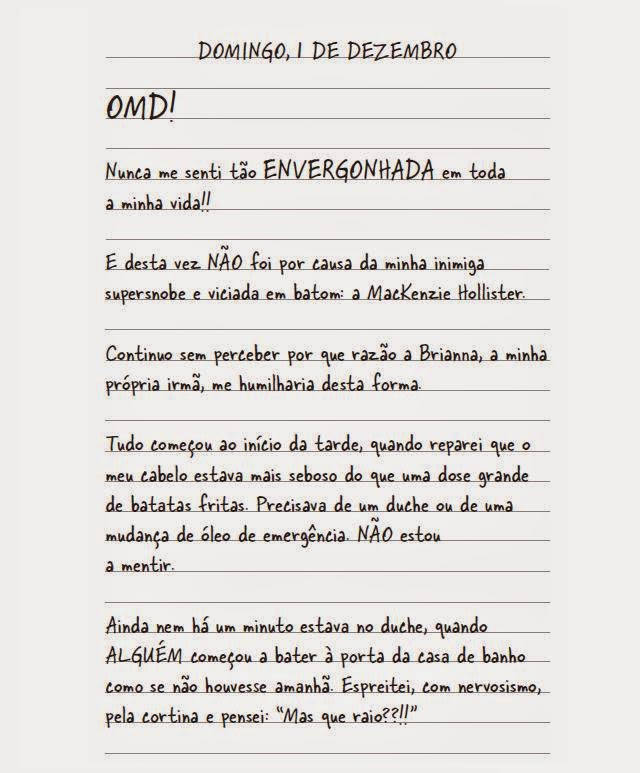 DOMINGO, 1 DE DEZEMBRO
OMD!
Nunca me senti tão ENVERGONHADA em toda
a minha vida!!
E desta vez NÃO foi por causa da minha inimiga
supersnobe e viciada em batom: a MacKenzie Hollister.
Continuo sem perceber por que razão a Brianna, a minha
própria irmã, me humilharia desta forma.
Tudo começou ao início da tarde, quando reparei que o
meu cabelo estava mais seboso do que uma dose grande
de batatas fritas. Precisava de um duche ou de uma
mudança de óleo de emergência. NÃO estou
a mentir.
Ainda nem há um minuto estava no duche, quando
ALGUÉM começou a bater à porta da casa de banho
como se não houvesse amanhã. Espreitei, com nervosismo,
pela cortina e pensei: “Mas que raio??!!”